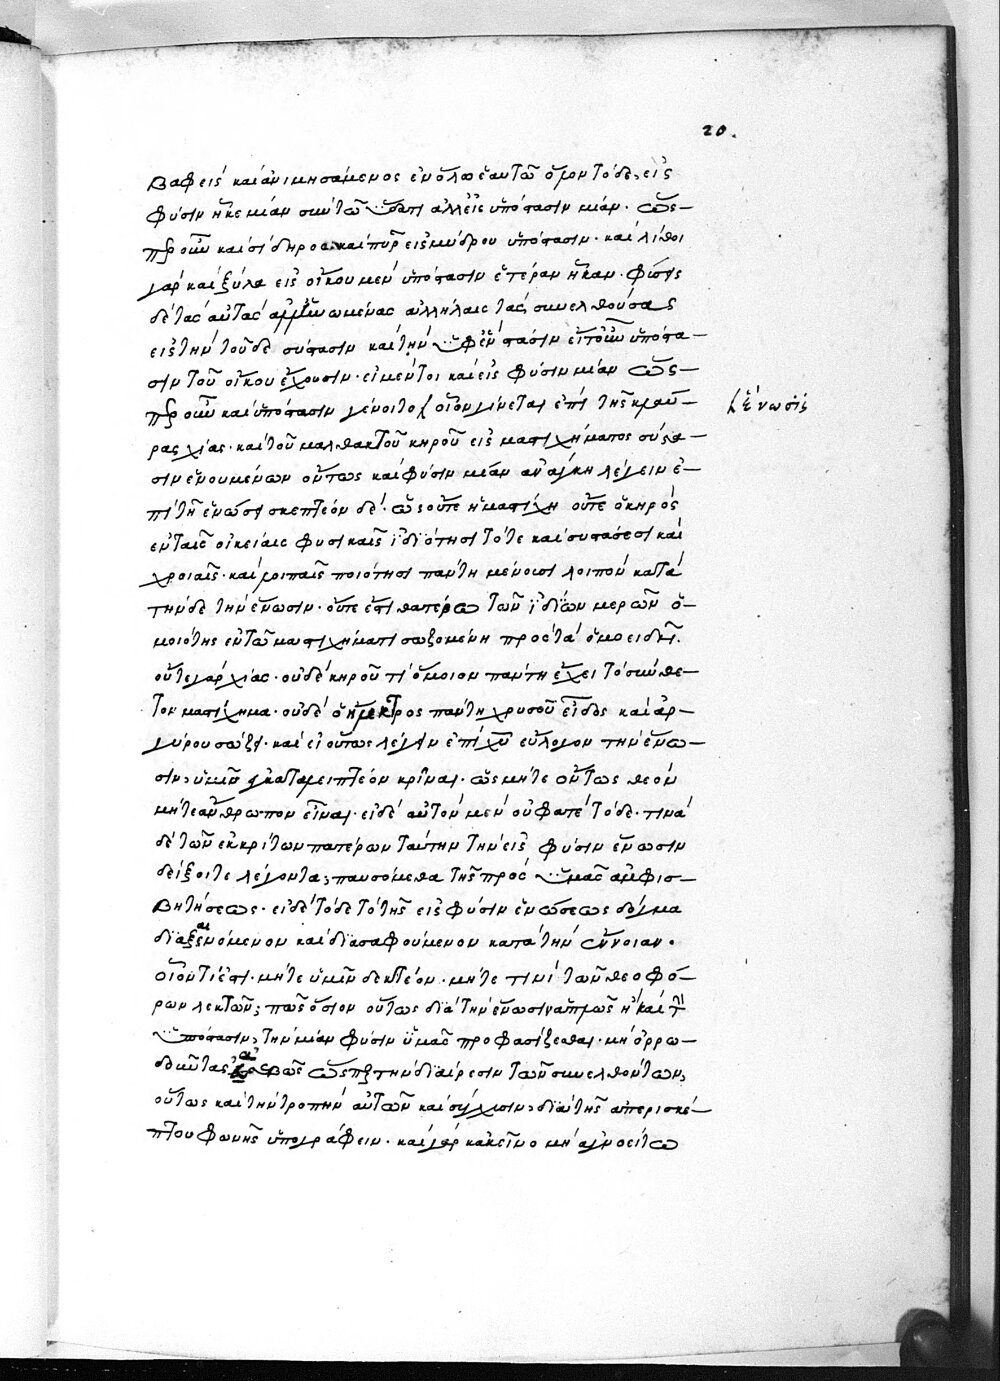 20.
βαφεὶς καὶ ἀνιμησάμενος ἐν ὅλῳ ἑαυτῷ ὅμον τόδε, εἰς
φύσιν ἧκε μίαν σὺν τῷ ὕδατι ἀλλ' εἰς ὑπόστασιν μίαν. ὥς-
περ οὖν καὶ σίδηρος καὶ πῦρ εἰς μύδρου ὑπόστασιν. καὶ λίθοι
γὰρ καὶ ξύλα εἰς οἴκου μὲν ὑπόστασιν ἑτέραν ἧκαν. φύσεις
δὲ τὰς αὐτὰς ἀλλήλαις τὰς συνελθούσας
εἰς τὴν τοῦδε σύστασιν καὶ τὴν εἴτουν ὑπόστα-
σιν τοῦ οἴκου ἔχουσιν. εἰ μέντοι καὶ εἰς φύσιν μίαν ὥς-
περ οὖν καὶ ὑπόστασιν γένοιτο οἷον γίνεται ἐπὶ τῆς
καὶ τοῦ μαλθακτοῦ κηροῦ εἰς μαστιχήματος σύστα-
σιν ἑνουμένων οὕτως καὶ φύσιν μίαν ἀνάγκη λέγειν ἐ-
πὶ τῇ ἑνώσει σκεπτέον δὲ. ὡς οὔτε ἡ μαστίχη οὔτε ὁ κηρὸς
ἐν ταῖς οἰκείαις φυσικαῖς ἰδιότησι τότε καὶ συστάσεσι καὶ
χροιαῖς. καὶ λοιπαῖς ποιότησι πάντη μένουσι λοιπὸν κατὰ
τήνδε τὴν ἕνωσιν. οὔτε ἔτι θατέρῳ τῶν ἰδίων μερῶν ὁ-
μοιότης ἐν τῷ μαστιχήματι σωζομένη πρὸς τὰ ὁμοειδῆ.
οὔτε γὰρ οὐδὲ κηροῦ τι ὅμοιον πάντη ἔχει τὸ σύνθε-
τον μαστίχημα. οὐδὲ ὁ ἤλεκτρος πάντη χρυσοῦ εἶδος καὶ ἀρ-
γύρου σώζει. καὶ εἰ οὕτως λέγειν ἐπὶ χριστοῦ εὔλογον τὴν ἕνω-
σιν, ὑμῖν κρῖναι. ὡς μήτε ὄντως θεὸν
μήτε ἄνθρωπον εἶναι. εἰ δὲ αὐτὸν μὲν οὐ φατὲ τόδε. τινὰ
δὲ τῶν ἐκκρίτων πατέρων ταύτην τὴν εἰς φύσιν ἕνωσιν
δείξοιτε λέγοντα, παυσόμεθα τῆς πρὸς ὑμᾶς ἀμφισ-
βητήσεως. εἰ δὲ τόδε τὸ τῆς εἰς φύσιν ἑνώσεως δόγμα
διαξαινόμενον καὶ διασαφούμενον κατὰ τὴν ἔννοιαν.
οἷόν τί ἐστι. μήτε ὑμῖν δεκτέον. μήτε τινὶ τῶν θεοφό-
ρων λεκτῶν, πῶς ὅσιον οὕτως διὰ τὴν ἕνωσιν ἁπλῶς ἢ καὶ τὴν
ὑπόστασιν, τὴν μίαν φύσιν ὑμᾶς προφασίζεσθαι. μὴ ὀρρω-
δοῦντας ἀκριβῶς ὥσπερ τὴν διαίρεσιν τῶν συνελθόντων,
οὕτως καὶ τὴν τροπὴν αὐτῶν καὶ σύγχυσιν, διὰ τῆς ἀπερισκέ-
πτου φωνῆς ὑπογράφειν. καὶ γὰρ κἀκεῖνο μὴ ἀγνοείτω
ἕνωσις